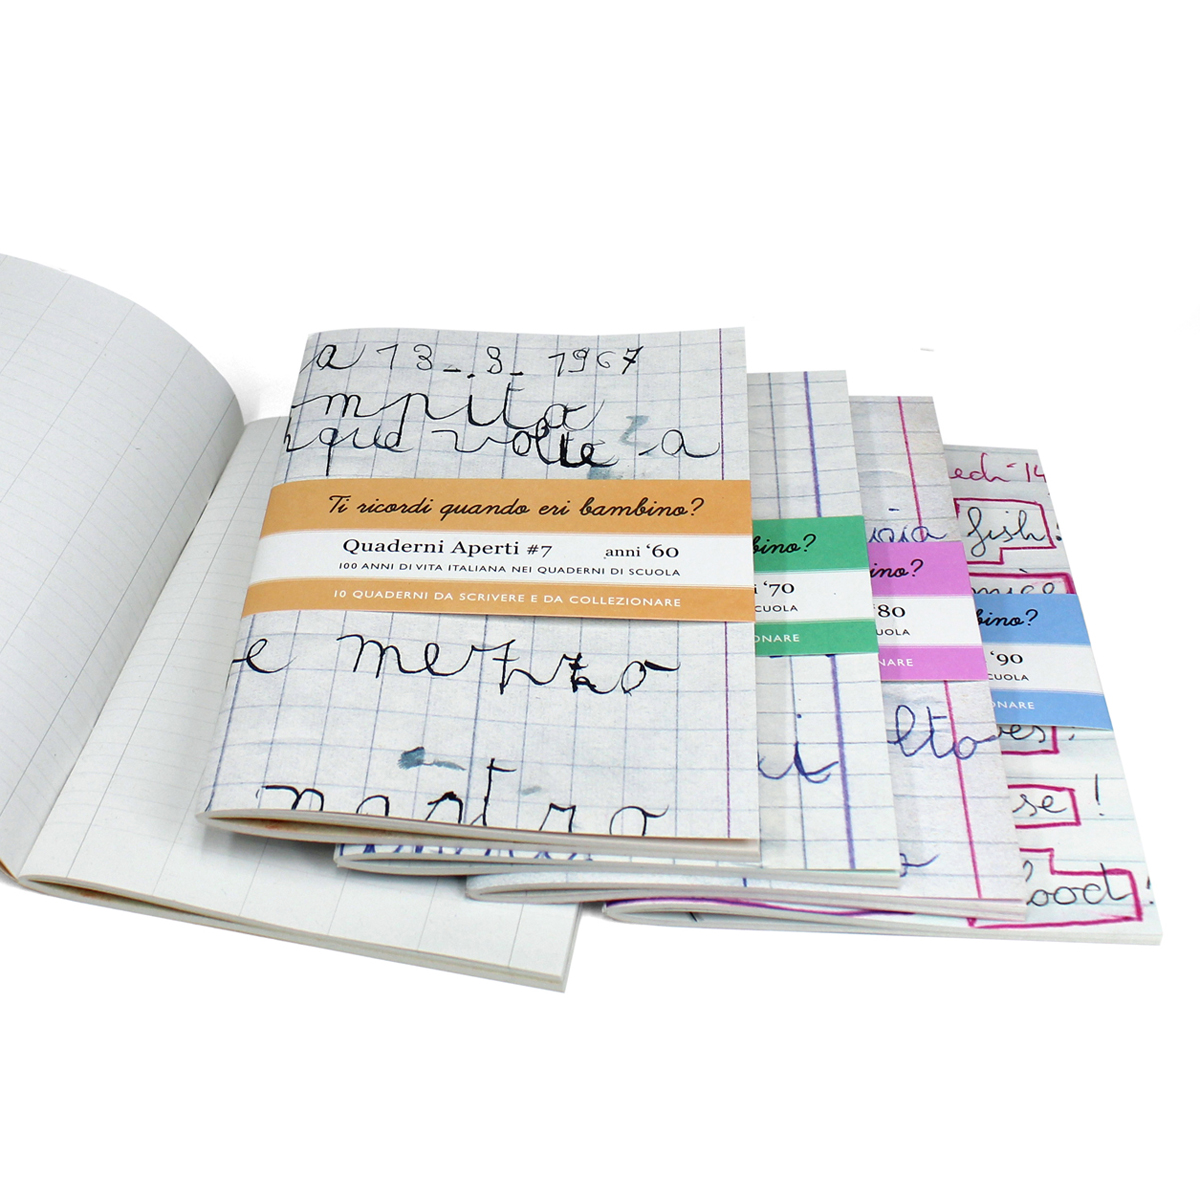 a 13_.3_ 1967
mpita
que volte a
Ti ricordi quando eri bambino?
Quaderni Aperti #7 anni ‘60
100 ANNI DI VITA ITALIANA NEI QUADERNI DI SCUOLA
10 QUADERNI DA SCRIVERE E DA COLLEZIONARE
e mezzo
nastro
bino?
i ‘70
CUOLA
ONARE
ino?
‘80
UOLA
NARE
lto
edì 14
fish!
bino?
‘90
CUOLA
ONARE
se!
ood!